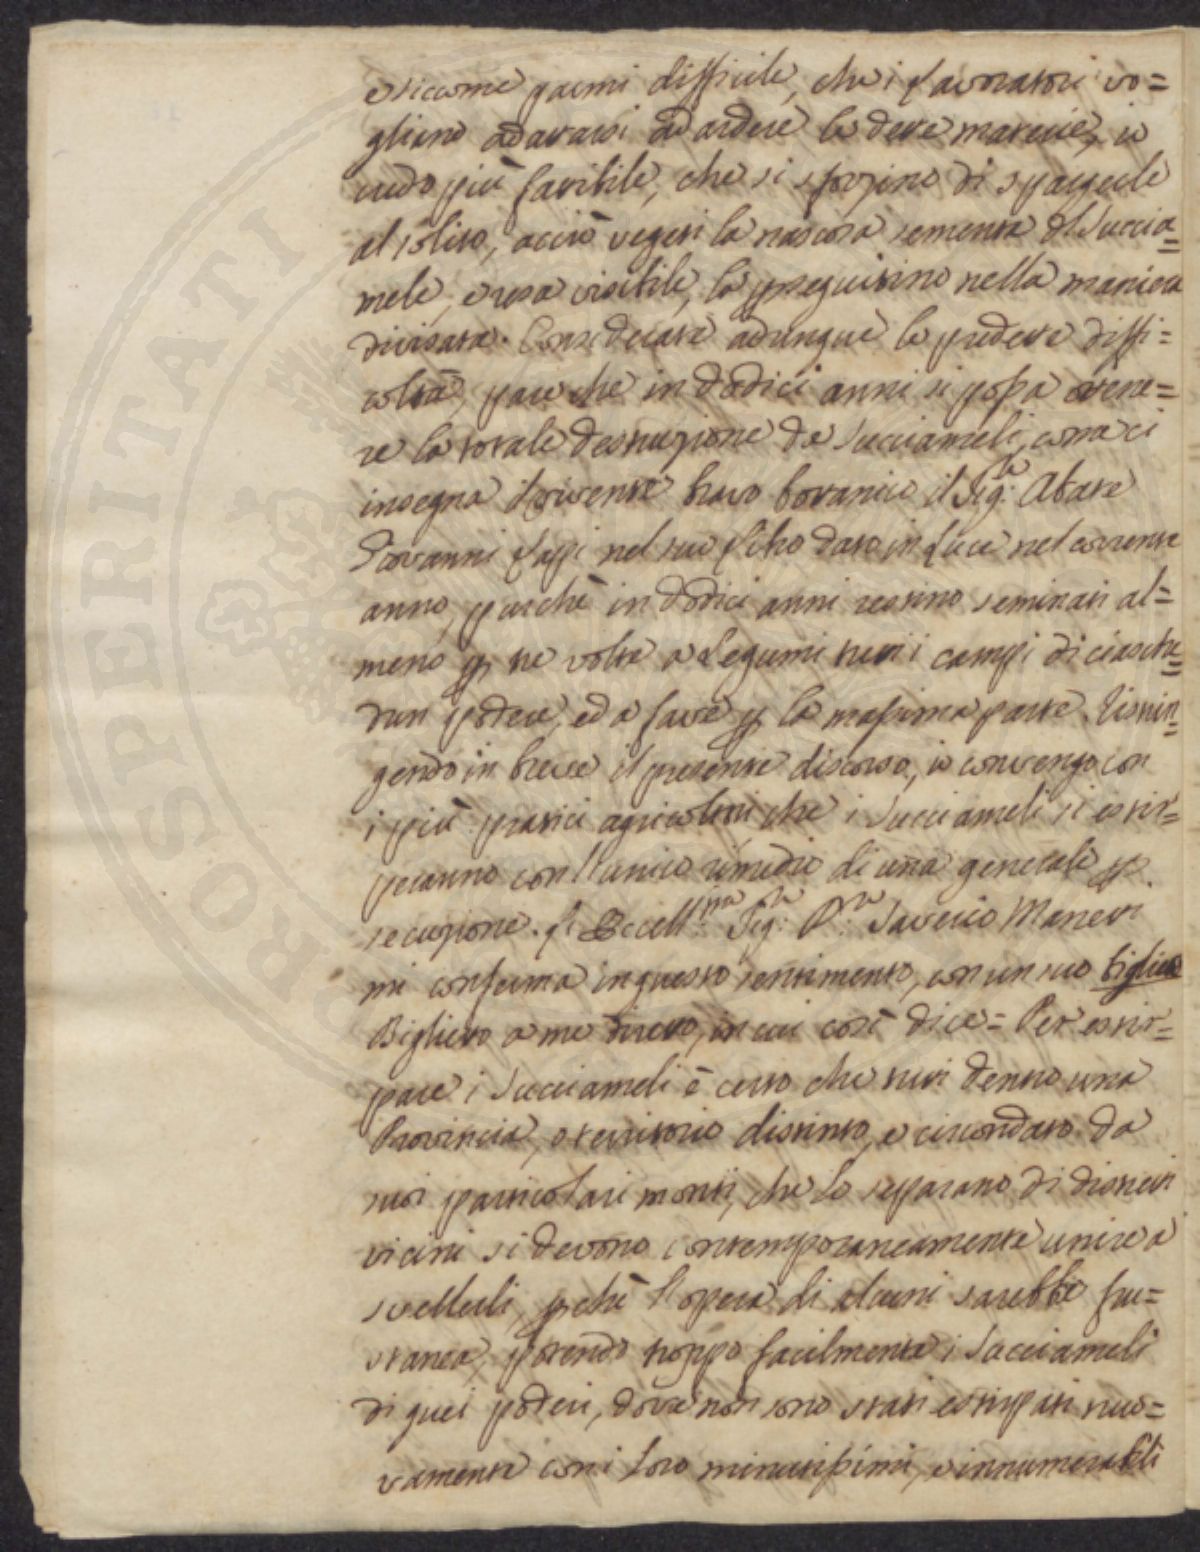 e siccome parmi difficile, che i Lavoratori vo=
gliano adattarsi ad ardere le dette materie, io
credo più fattibile, che si sforzino di spargerle
al solito, acciò vegeti la nascosta sementa del Succia=
mele, e resa visibile, la perseguitino nella maniera
divisata. Considerate adunque le predette diffi=
coltà, pare che in dodici anni si possa ottene=
re la totale destruzione de Succiameli, come ci
insegna il vivente bravo botanico il Sig.re Abate
Giovanni Lapi nel suo Libro dato in Luce nel corrente
anno, purchè in dodici anni restino seminati al=
meno per tre volte a Legumi tutti i campi di ciasche=
dun podere, ed a fave per la massima parte. Ristrin=
gendo in breve il presente discorso, io convengo con
i più pratici agricoltori che i Succiameli si estir=
peranno con l'unico rimedio di una generale per
secuzione. L'Eccell.mo Sig.re D.re Saverio Manetti
mi conferma in questo sentimento, con un suo
Biglietto a me diretto, in cui così dice = Per estir=
pare i Succiameli è certo che tutti dentro una
Provincia, o territorio distinto, e circondato da
suoi particolari monti, che lo separano di distretti
vicini si devono contemporaneamente unire a
svellerli, perchè l'opera di alcuni sarebbe fru=
stranea, potendo troppo facilmente i Succiameli
di quei poderi, dove non sono stati estirpati nuo=
vamente con i loro minutissimi, e innumerabili
PROSPERITATI